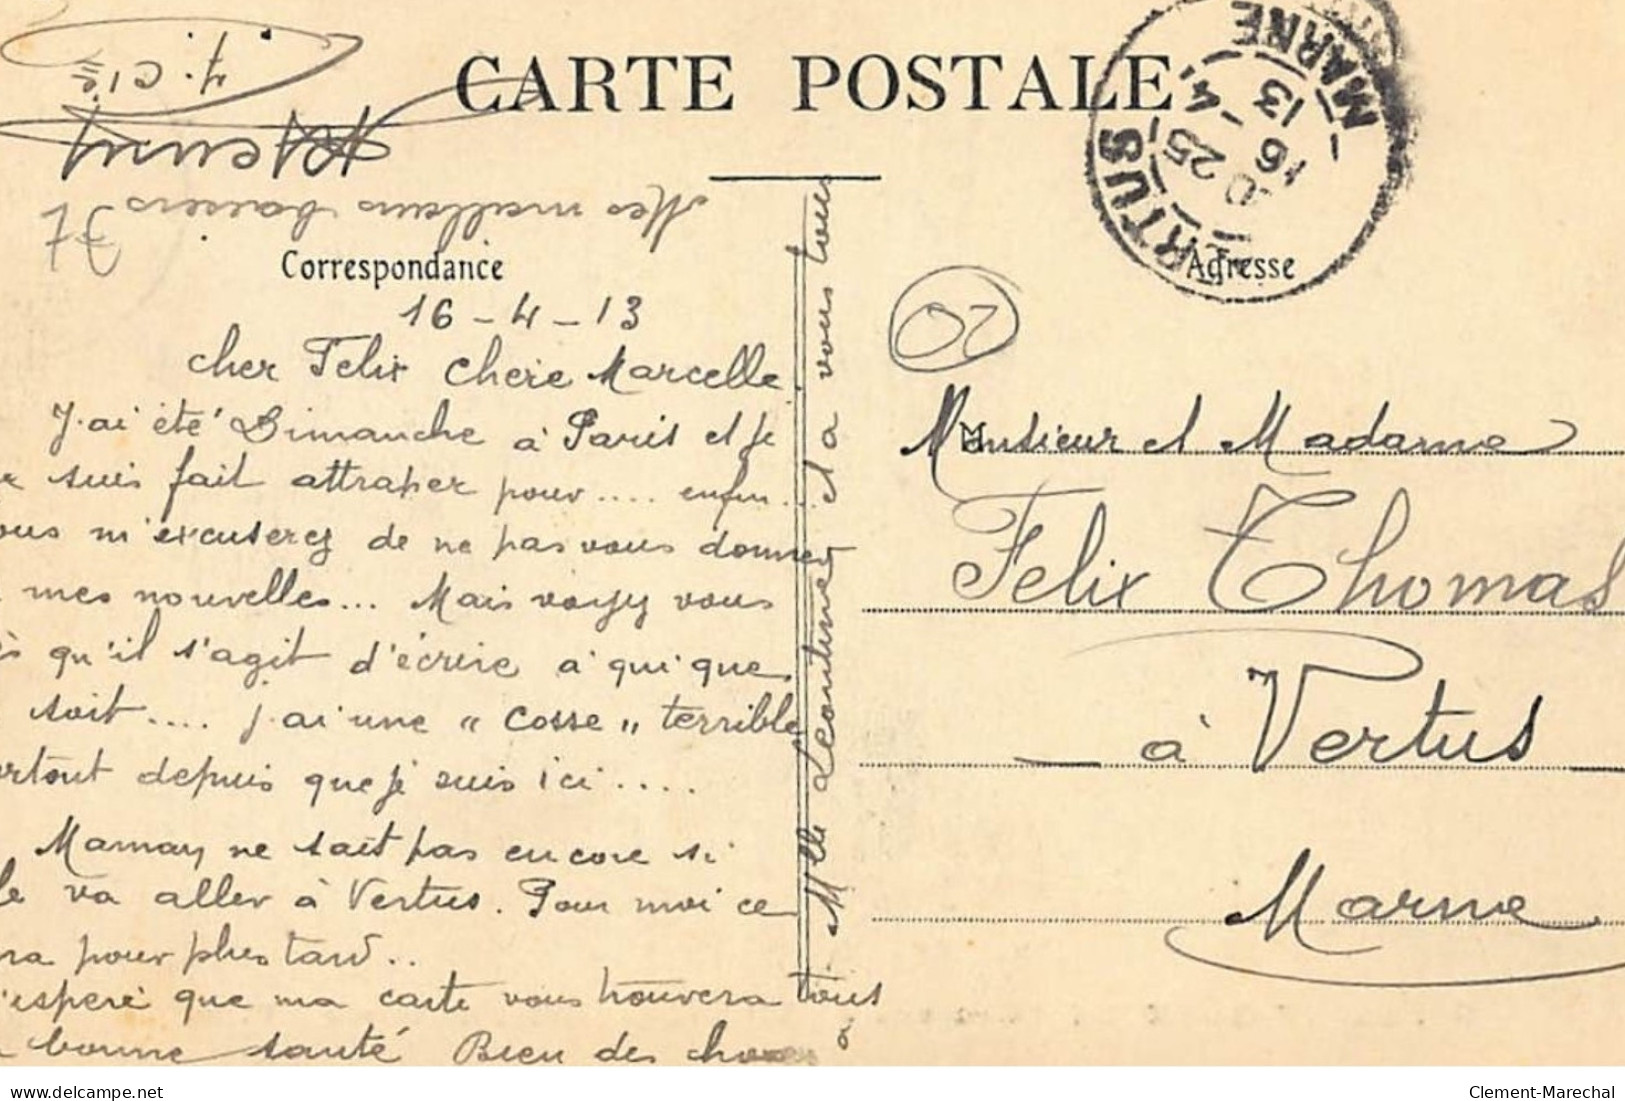 CARTE POSTALE
Correspondance
Adresse
16-4-13
cher Felix chere Marcelle
J'ai été Dimanche à Paris et je
suis fait attraper pour .... enfin...
ous m'excuserez de ne pas vous donner
mes nouvelles... Mais voyez vous
qu'il s'agit d'écrire à qui que
soit .... j'ai une "cosse" terrible
rtout depuis que je suis ici ....
Maman ne sait pas encore si
le va aller à Vertus. Pour moi ce
ra pour plus tard..
'espere que ma carte vous trouvera tous
bonne santé Bien des choses
à Mlle Leontine et a vous tous
Mes meilleurs baisers
Henry
7. Cie
Monsieur et Madame
Felix Thomas
à Vertus
Marne
02
VERTUS
MARNE
25
16 -4
13
delcampe.net
Clement-Marechal